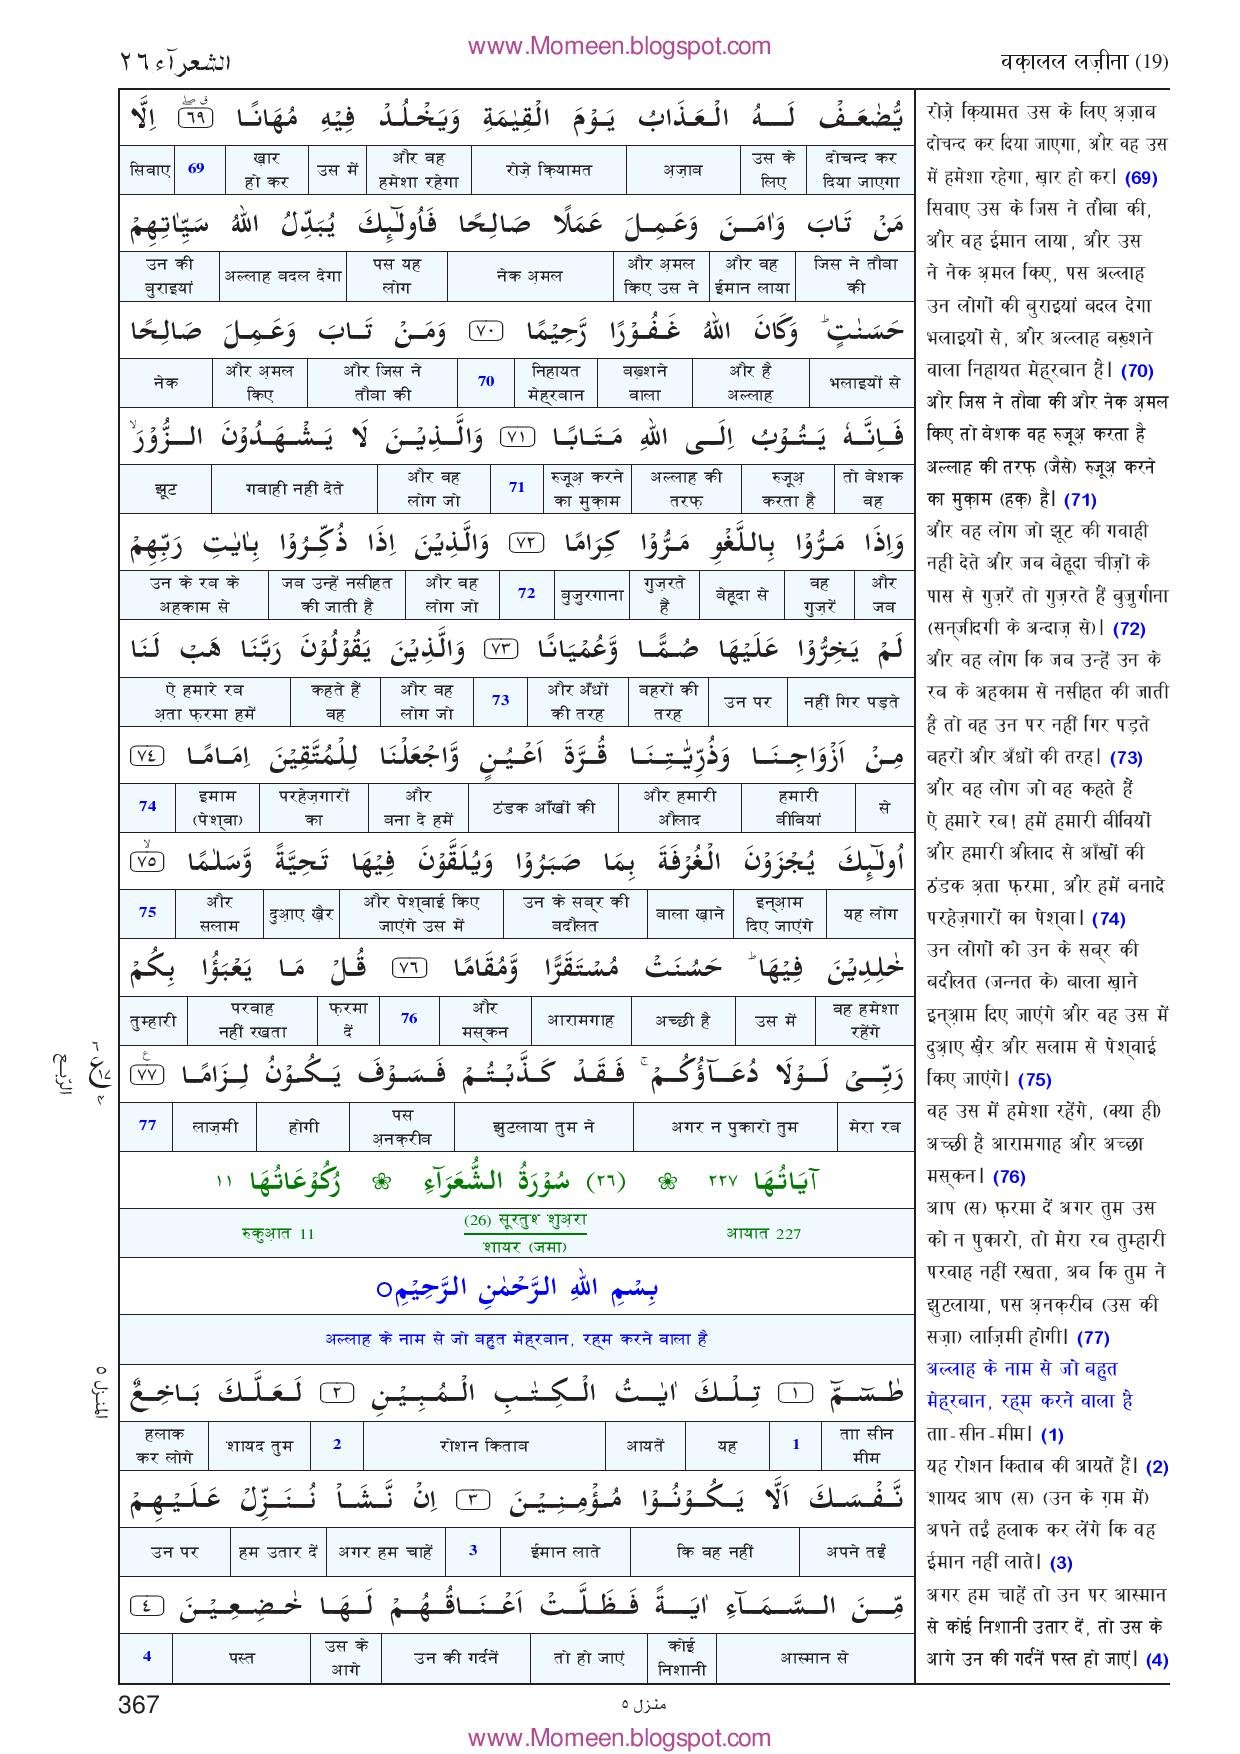 www.Momeen.blogspot.com
الشعرآء ٢٦
वक़ालल लज़ीना (19)
يُّضٰعَفْ لَـهُ الْعَذَابُ يَوْمَ الْقِيٰمَةِ وَيَخْلُدْ فِيْهٖ مُهَانًا ۖ ٦٩ اِلَّا
दोचन्द कर दिया जाएगा | उस के लिए | अ़ज़ाब | रोज़े क़ियामत | और वह हमेशा रहेगा | उस में | ख़ार हो कर | 69 | सिवाए
مَنْ تَابَ وَاٰمَنَ وَعَمِلَ عَمَلًا صَالِحًا فَاُولٰٓئِكَ يُبَدِّلُ اللّٰهُ سَيِّاٰتِهِمْ
जिस ने तौबा की | और वह ईमान लाया | और अ़मल किए उस ने | नेक अ़मल | पस यह लोग | अल्लाह बदल देगा | उन की बुराइयां
حَسَنٰتٍ ؕ وَكَانَ اللّٰهُ غَفُوْرًا رَّحِيْمًا ٧٠ وَمَنْ تَابَ وَعَمِلَ صَالِحًا
भलाइयों से | और है अल्लाह | बख़्शने वाला | निहायत मेह्रबान | 70 | और जिस ने तौबा की | और अ़मल किए | नेक
فَاِنَّهٗ يَتُوْبُ اِلَى اللّٰهِ مَتَابًا ٧١ وَالَّذِيْنَ لَا يَشْهَدُوْنَ الزُّوْرَ ۙ
तो बेशक वह | रुजूअ़ करता है | अल्लाह की तरफ़ | रुजूअ़ करने का मुक़ाम | 71 | और वह लोग जो | गवाही नहीं देते | झूट
وَاِذَا مَرُّوْا بِاللَّغْوِ مَرُّوْا كِرَامًا ٧٢ وَالَّذِيْنَ اِذَا ذُكِّرُوْا بِاٰيٰتِ رَبِّهِمْ
और जब | वह गुज़रें | बेहूदा से | गुज़रते हैं | बुज़ुरगाना | 72 | और वह लोग जो | जब उन्हें नसीहत की जाती है | उन के रब के अहकाम से
لَمْ يَخِرُّوْا عَلَيْهَا صُمًّا وَّعُمْيَانًا ٧٣ وَالَّذِيْنَ يَقُوْلُوْنَ رَبَّنَا هَبْ لَنَا
नहीं गिर पड़ते | उन पर | बहरों की तरह | और अँधों की तरह | 73 | और वह लोग जो | कहते हैं वह | ऐ हमारे रब अ़ता फ़रमा हमें
مِنْ اَزْوَاجِنَا وَذُرِّيّٰتِنَا قُرَّةَ اَعْيُنٍ وَّاجْعَلْنَا لِلْمُتَّقِيْنَ اِمَامًا ٧٤
से | हमारी बीवियां | और हमारी औलाद | ठंडक आँखों की | और बना दे हमें | परहेज़गारों का | इमाम (पेश्वा) | 74
اُولٰٓئِكَ يُجْزَوْنَ الْغُرْفَةَ بِمَا صَبَرُوْا وَيُلَقَّوْنَ فِيْهَا تَحِيَّةً وَّسَلٰمًا ۙ ٧٥
यह लोग | इन्आ़म दिए जाएंगे | बाला ख़ाने | उन के सब्र की बदौलत | और पेश्वाई किए जाएंगे उस में | दुआ़ए ख़ैर | और सलाम | 75
خٰلِدِيْنَ فِيْهَا ؕ حَسُنَتْ مُسْتَقَرًّا وَّمُقَامًا ٧٦ قُلْ مَا يَعْبَؤُا بِكُمْ
वह हमेशा रहेंगे | उस में | अच्छी है | आरामगाह | और मस्कन | 76 | फ़रमा दें | परवाह नहीं रखता | तुम्हारी
رَبِّيْ لَوْلَا دُعَآؤُكُمْ ۚ فَقَدْ كَذَّبْتُمْ فَسَوْفَ يَكُوْنُ لِزَامًا ٧٧
मेरा रब | अगर न पुकारो तुम | झुटलाया तुम ने | पस अ़नक़रीब | होगी | लाज़मी | 77
آيَاتُهَا ٢٢٧ (٢٦) سُوْرَةُ الشُّعَرَآءِ رُكُوْعَاتُهَا ١١
आयात 227 | (26) सूरतुश शुअ़रा शायर (जमा) | रुकुआ़त 11
بِسْمِ اللّٰهِ الرَّحْمٰنِ الرَّحِيْمِ ○
अल्लाह के नाम से जो बहुत मेह्रबान, रह्म करने वाला है
طٰسٓمّٓ ١ تِلْكَ اٰيٰتُ الْكِتٰبِ الْمُبِيْنِ ٢ لَعَلَّكَ بَاخِعٌ
ताा सीन मीम | 1 | यह | आयतें | रोशन किताब | 2 | शायद तुम | हलाक कर लोगे
نَّفْسَكَ اَلَّا يَكُوْنُوْا مُؤْمِنِيْنَ ٣ اِنْ نَّشَاْ نُنَزِّلْ عَلَيْهِمْ
अपने तईं | कि वह नहीं | ईमान लाते | 3 | अगर हम चाहें | हम उतार दें | उन पर
مِّنَ السَّمَآءِ اٰيَةً فَظَلَّتْ اَعْنَاقُهُمْ لَهَا خٰضِعِيْنَ ٤
आस्मान से | कोई निशानी | तो हो जाएं | उन की गर्दनें | उस के आगे | पस्त | 4
रोज़े क़ियामत उस के लिए अ़ज़ाब
दोचन्द कर दिया जाएगा, और वह उस
में हमेशा रहेगा, ख़ार हो कर। (69)
सिवाए उस के जिस ने तौबा की,
और वह ईमान लाया, और उस
ने नेक अ़मल किए, पस अल्लाह
उन लोगों की बुराइयां बदल देगा
भलाइयों से, और अल्लाह बख़्शने
वाला निहायत मेह्रबान है। (70)
और जिस ने तौबा की और नेक अ़मल
किए तो बेशक वह रुजूअ़ करता है
अल्लाह की तरफ़ (जैसे) रुजूअ़ करने
का मुक़ाम (हक़) है। (71)
और वह लोग जो झूट की गवाही
नही देते और जब बेहूदा चीज़ों के
पास से गुज़रें तो गुज़रते हैं बुज़ुर्गाना
(सन्जीदगी के अन्दाज़ से)। (72)
और वह लोग कि जब उन्हें उन के
रब के अहकाम से नसीहत की जाती
है तो वह उन पर नहीं गिर पड़ते
बहरों और अँधों की तरह। (73)
और वह लोग जो वह कहते हैं
ऐ हमारे रब! हमें हमारी बीवियों
और हमारी औलाद से आँखों की
ठंडक अ़ता फ़रमा, और हमें बनादे
परहेज़गारों का पेश्वा। (74)
उन लोगों को उन के सब्र की
बदौलत (जन्नत के) बाला ख़ाने
इन्आ़म दिए जाएंगे और वह उस में
दुआ़ए ख़ैर और सलाम से पेश्वाई
किए जाएंगे। (75)
वह उस में हमेशा रहेंगे, (क्या ही)
अच्छी है आरामगाह और अच्छा
मस्कन। (76)
आप (स) फ़रमा दें अगर तुम उस
को न पुकारो, तो मेरा रब तुम्हारी
परवाह नहीं रखता, अब कि तुम ने
झुटलाया, पस अ़नक़रीब (उस की
सज़ा) लाज़िमी होगी। (77)
अल्लाह के नाम से जो बहुत
मेह्रबान, रह्म करने वाला है
ताा-सीन-मीम। (1)
यह रोशन किताब की आयतें हैं। (2)
शायद आप (स) (उन के ग़म में)
अपने तईं हलाक कर लेंगे कि वह
ईमान नहीं लाते। (3)
अगर हम चाहें तो उन पर आस्मान
से कोई निशानी उतार दें, तो उस के
आगे उन की गर्दनें पस्त हो जाएं। (4)
الرّبع
ع
المنزل ٥
367
منزل ٥
www.Momeen.blogspot.com